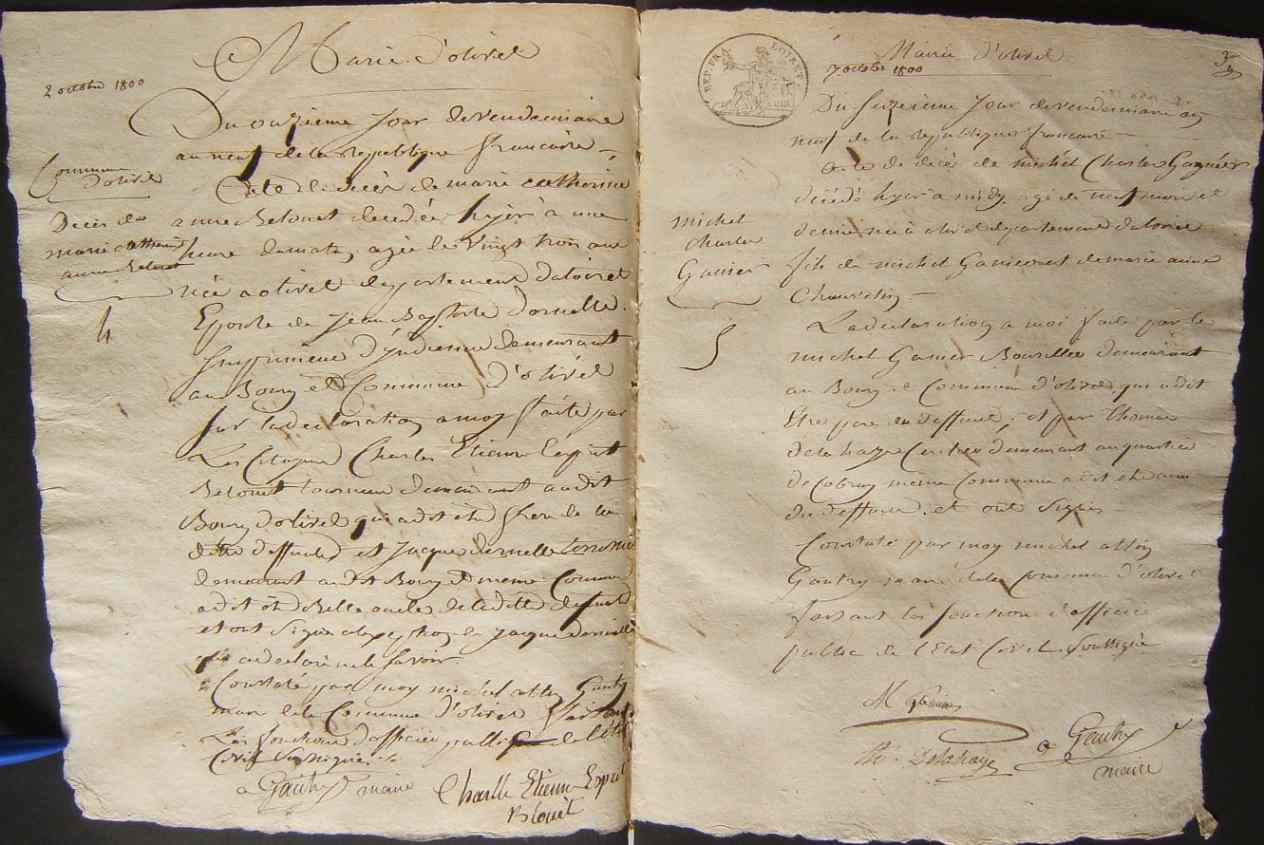 Mairie d'olivet
2 octobre 1800
Du onzieme Jour de vendemiaire
au neuf de la republique francaise
Commune
d'olivet
Acte de deces de marie catherine
Deces de
marie catherine
anne Belouet
anne Belouet decedée hyer à une
heure de matin, agée de vingt trois ans
née a olivet departement du loiret
4
Epouse de Jean Baptiste Dornelle
Imprimeur d'Indienne demeurant
au Bourg et Commune d'olivet
sur la declaration a moy faite par
Les Citoyens Charles Etienne Esprit
Belouet tourneur demeurant audit
Bourg d'olivet qui a dit etre frere de la
ditte deffunte et Jacque dornelle
demeurant audit Bourg et meme Commune
a dit etre oncle de la ditte defunte
et ont signé excepté Jacque dornelle
qui a declaré ne le savoir
Constaté par moy michel Gautry
maire de la Commune d'olivet faisant
Les fonctions d'officier public de l'état
Civil Soussigné
Gautry maire
Charlle Etienne Esprit
Blouet
REP. FRA. LOIRET
Mairie d'olivet
7 octobre 1800
3
Du quinzieme Jour de vendemiaire an
neuf de la republique francaise
Acte de décè de michel Charles Ganier
décédé hyer à midy, agé de neuf mois et
michel
Charles
Ganier
demie né à olivet departement du loiret
fils de michel Ganier et de marie anne
5
La declaration a moi faite par le
michel Ganier demeurant
au Bourg et Commune d'olivet qui a dit
Etre pere du deffunt, et par Thomas
delahaye demeurant au quartier
de meme Commune a dit etre ami
du deffunt. et ont signés
Constaté par moy michel
Gautry maire de la Commune d'olivet
faisant les fonction d'officier
public de l'Etat Civil Soussigné
M Ganier
Th. Delahaye
Gautry
maire